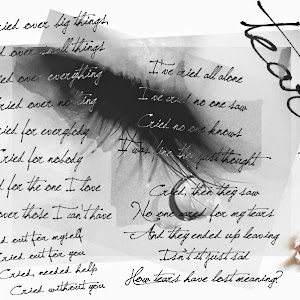 ried over big things,
ried over small things
ied over everything
ried over nothing
ried for everybody
ried for nobody
d for the one I love
over those I can't have
ied out for myself
Cried out for you
Cried, needed help
Cried without you
I've cried all alone
I've cried no one saw
Cried no one knows
I was just thought
Cried, then they saw
No one cared for my tears
And they ended up leaving
Isn't it just sad
How tears have lost meaning?
tear